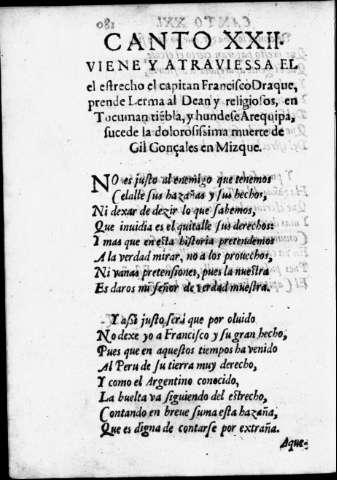 180
CANTO XXII.
VIENE Y ATRAVIESSA EL
el estrecho el capitan Francisco Draque,
prende Lerma al Dean y religiosos, en
Tucuman tiẽbla, y hundese Arequipa,
sucede la dolorosissima muerte de
Gil Gonçales en Mizque.
NO es justo al enemigo que tenemos
Celalle sus hazañas y sus hechos,
Ni dexar de dezir lo que sabemos,
Que inuidia es el quitalle sus derechos:
Y mas que en esta historia pretendemos
A la verdad mirar, no a los prouechos,
Ni vanas pretensiones, pues la nuestra
Es daros mi señor de verdad muestra.
Y assi justo será que por oluido
No dexe yo a Francisco y su gran hecho,
Pues que en aquestos tiempos ha venido
Al Peru de su tierra muy derecho,
Y como el Argentino conocido,
La buelta va siguiendo del estrecho,
Contando en breue suma esta hazaña,
Que es digna de contarse por extraña.
Aque-